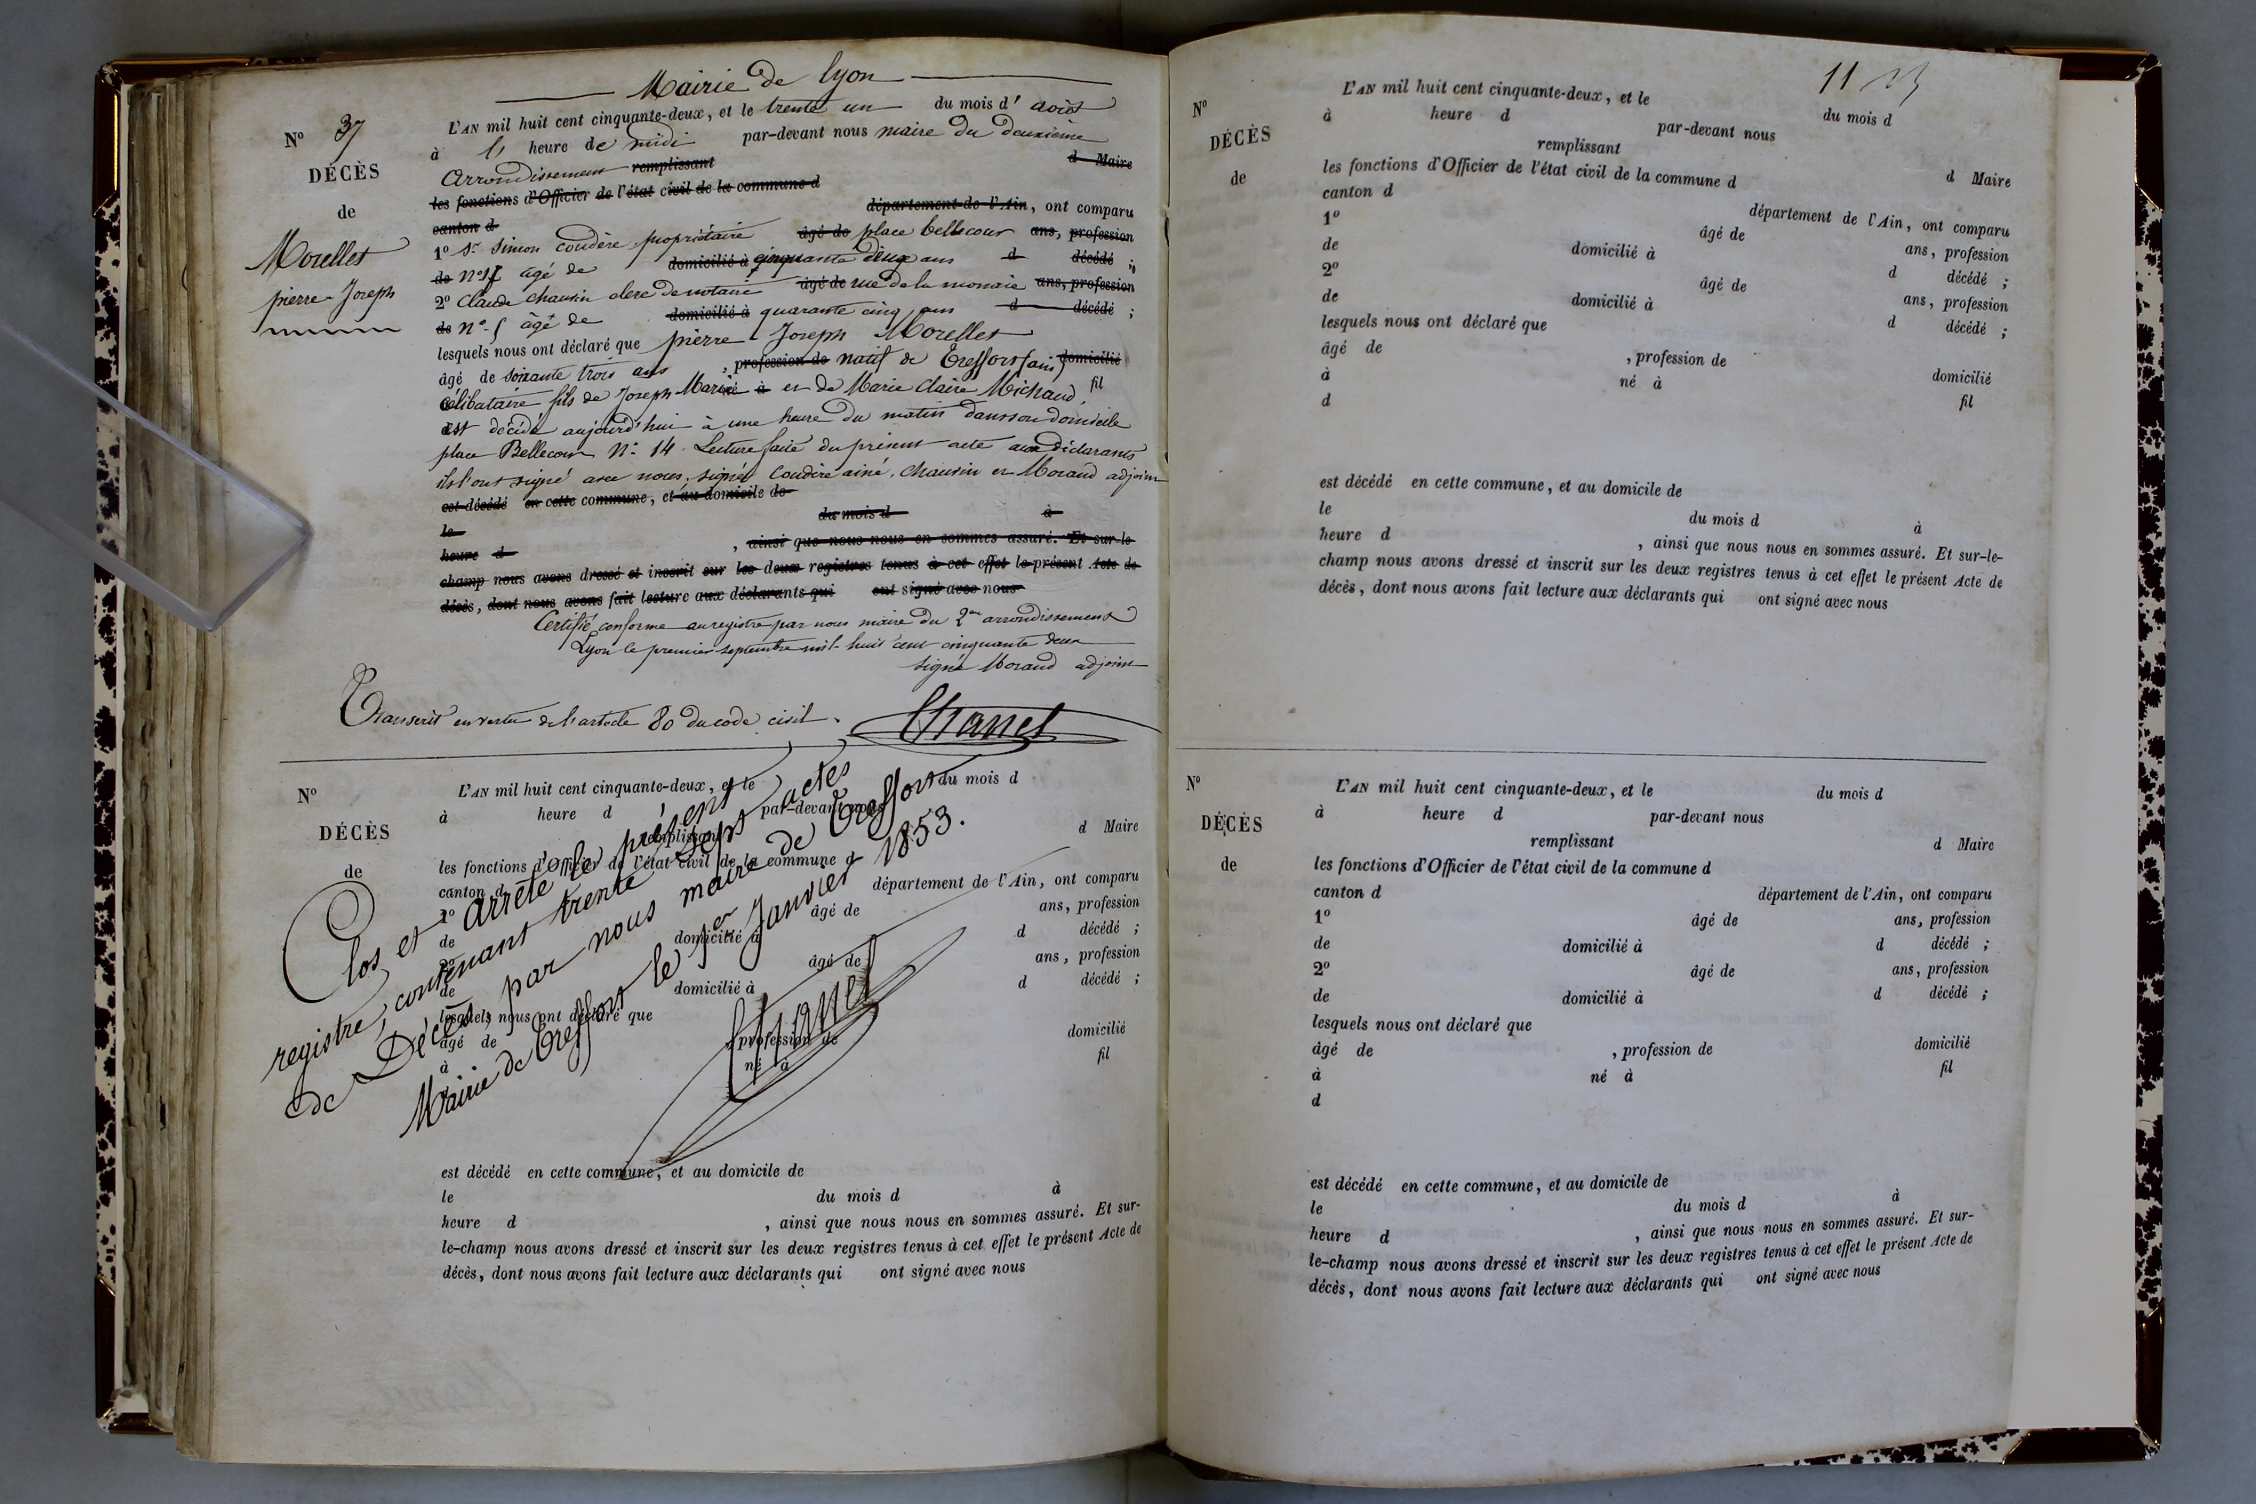 Mairie de Lyon
N° 37
DÉCÈS
de
Morellet
pierre Joseph
L'AN mil huit cent cinquante-deux, et le trente un du mois d' août
à heure de midi par-devant nous maire du deuxième
Arrondissement remplissant d Maire
les fonctions d'Officier de l'état civil de la commune d
canton d département de l'Ain, ont comparu
1° Sr Simon Coudère propriétaire âgé de place bellecour ans, profession
de n° âgé de domicilié à cinquante deux ans d décédé ;
2° Claude Chausin clerc de notaire âgé de rue de la monaie ans, profession
de n° 5 âgé de domicilié à quarante cinq ans d décédé ;
lesquels nous ont déclaré que pierre Joseph Morellet
âgé de soixante trois ans , profession de natif de Treffort (ain) domicilié
célibataire fils de Joseph Marié à et de Marie Claire Michaud, fil
est décédé aujourd'hui à une heure du matin dans son domicile
place Bellecour N° 14. Lecture faite du présent acte aux déclarants
ils l'ont signé avec nous. signés Coudère ainé, Chausin et Morand adjoint
est décédé en cette commune, et au domicile de
le du mois d à
heure d , ainsi que nous nous en sommes assuré. Et sur-le-
champ nous avons dressé et inscrit sur les deux registres tenus à cet effet le présent Acte de
décès, dont nous avons fait lecture aux déclarants qui ont signé avec nous
Certifié conforme au registre par nous maire du 2me arrondissement
Lyon le premier septembre mil huit cent cinquante deux
signé Morand adjoint
Transcrit en vertu de l'article 80 du code civil.
Chanel
N°
DÉCÈS
de
L'AN mil huit cent cinquante-deux, et le du mois d
à heure d par-devant nous
remplissant d Maire
les fonctions d'Officier de l'état civil de la commune d
canton d département de l'Ain, ont comparu
1° âgé de ans, profession
de domicilié à d décédé ;
2° âgé de ans, profession
de domicilié à d décédé ;
lesquels nous ont déclaré que
âgé de , profession de domicilié
à né à fil
Clos et arrêté le présent
registre, contenant trente sept actes
de Décès, par nous maire de Treffort
Mairie de Treffort le 1er Janvier 1853.
Chanel
est décédé en cette commune, et au domicile de
le du mois d à
heure d , ainsi que nous nous en sommes assuré. Et sur-
le-champ nous avons dressé et inscrit sur les deux registres tenus à cet effet le présent Acte de
décès, dont nous avons fait lecture aux déclarants qui ont signé avec nous
11
N°
DÉCÈS
de
L'AN mil huit cent cinquante-deux, et le du mois d
à heure d par-devant nous
remplissant d Maire
les fonctions d'Officier de l'état civil de la commune d
canton d département de l'Ain, ont comparu
1° âgé de ans, profession
de domicilié à d décédé ;
2° âgé de ans, profession
de domicilié à d décédé ;
lesquels nous ont déclaré que
âgé de , profession de domicilié
à né à fil
d
est décédé en cette commune, et au domicile de
le du mois d à
heure d , ainsi que nous nous en sommes assuré. Et sur-le-
champ nous avons dressé et inscrit sur les deux registres tenus à cet effet le présent Acte de
décès, dont nous avons fait lecture aux déclarants qui ont signé avec nous
N°
DÉCÈS
de
L'AN mil huit cent cinquante-deux, et le du mois d
à heure d par-devant nous
remplissant d Maire
les fonctions d'Officier de l'état civil de la commune d
canton d département de l'Ain, ont comparu
1° âgé de ans, profession
de domicilié à d décédé ;
2° âgé de ans, profession
de domicilié à d décédé ;
lesquels nous ont déclaré que
âgé de , profession de domicilié
à né à fil
d
est décédé en cette commune, et au domicile de
le du mois d à
heure d , ainsi que nous nous en sommes assuré. Et sur-
le-champ nous avons dressé et inscrit sur les deux registres tenus à cet effet le présent Acte de
décès, dont nous avons fait lecture aux déclarants qui ont signé avec nous